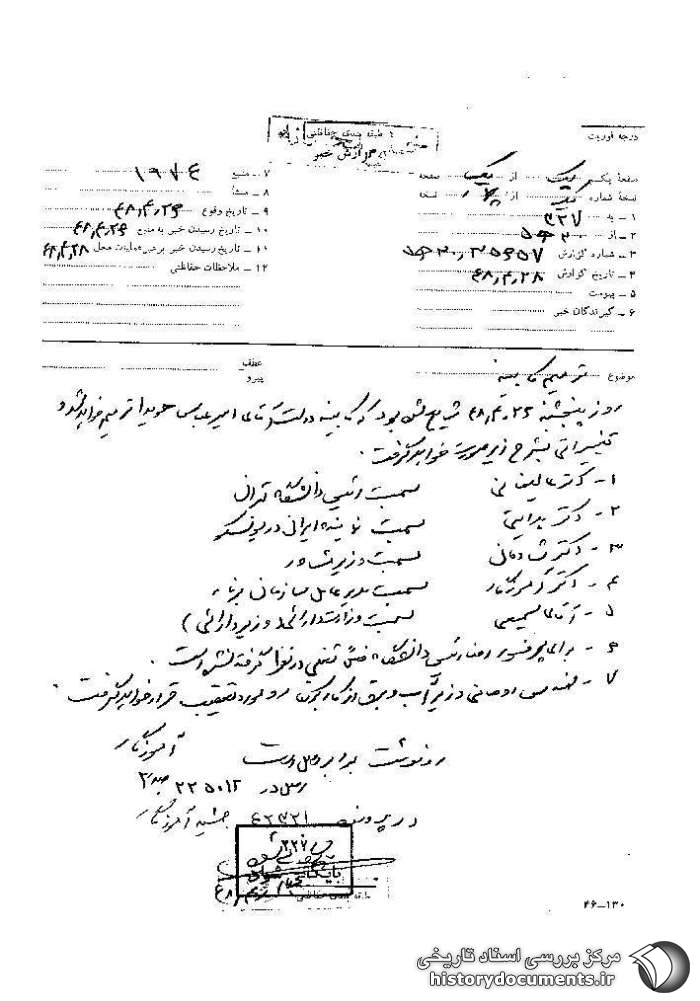 درجه فوریت
طبقه بندی حفاظتی
گزارش خبر
صفحه یک از یک صفحه
نسخه شماره یک از نسخه
۱ - به ۳۲۷
۲ - از ۲۰ ه ۵
۳ - شماره گزارش
۴ - تاریخ گزارش ۴۸/۴/۲۸
۵ - پیوست
۶ - گیرندگان خبر
۷ - منبع ۱۹۷۴
۸ - منشأ
۹ - تاریخ وقوع ۴۸/۴/۲۶
۱۰ - تاریخ رسیدن خبر به منبع ۴۸/۴/۲۶
۱۱ - تاریخ رسیدن خبر برهبر عملیات محل ۴۸/۴/۲۸
۱۲ - ملاحظات حفاظتی
موضوع ترمیم کابینه
عطف
پیرو
روز پنجشنبه ۴۸/۴/۲۶ شایع شده بود که کابینه دولت آقای امیرعباس هویدا ترمیم خواهد شد و
تغییراتی بشرح زیر صورت خواهد گرفت .
۱ - دکتر عالیخانی بسمت رئیس دانشگاه تهران
۲ - دکتر هدایتی بسمت نماینده ایران در یونسکو
۳ - دکتر شادمان بسمت وزیر مشاور
۴ - دکتر آموزگار بسمت مدیر عامل سازمان برنامه
۵ - آقای سمیعی بسمت وزارت دارائی (وزیر دارائی)
۶ - برای پرفسور رضا رئیس دانشگاه فعلی شغلی در نظر گرفته نشده است .
۷ - مهندس روحانی وزیر آب و برق از کار برکنار و مورد تعقیب قرار خواهد گرفت .
آموزگار
رونوشت برابر اصل است
اصل در ۲۲۵۰۱۲ جلد ۳
در پرونده ۴۲۳۲۱ جمشید آموزگار
بایگانی شود
طبقه بندی حفاظتی
۴۶-۱۳۰
مرکز بررسی اسناد تاریخی
historydocuments.ir